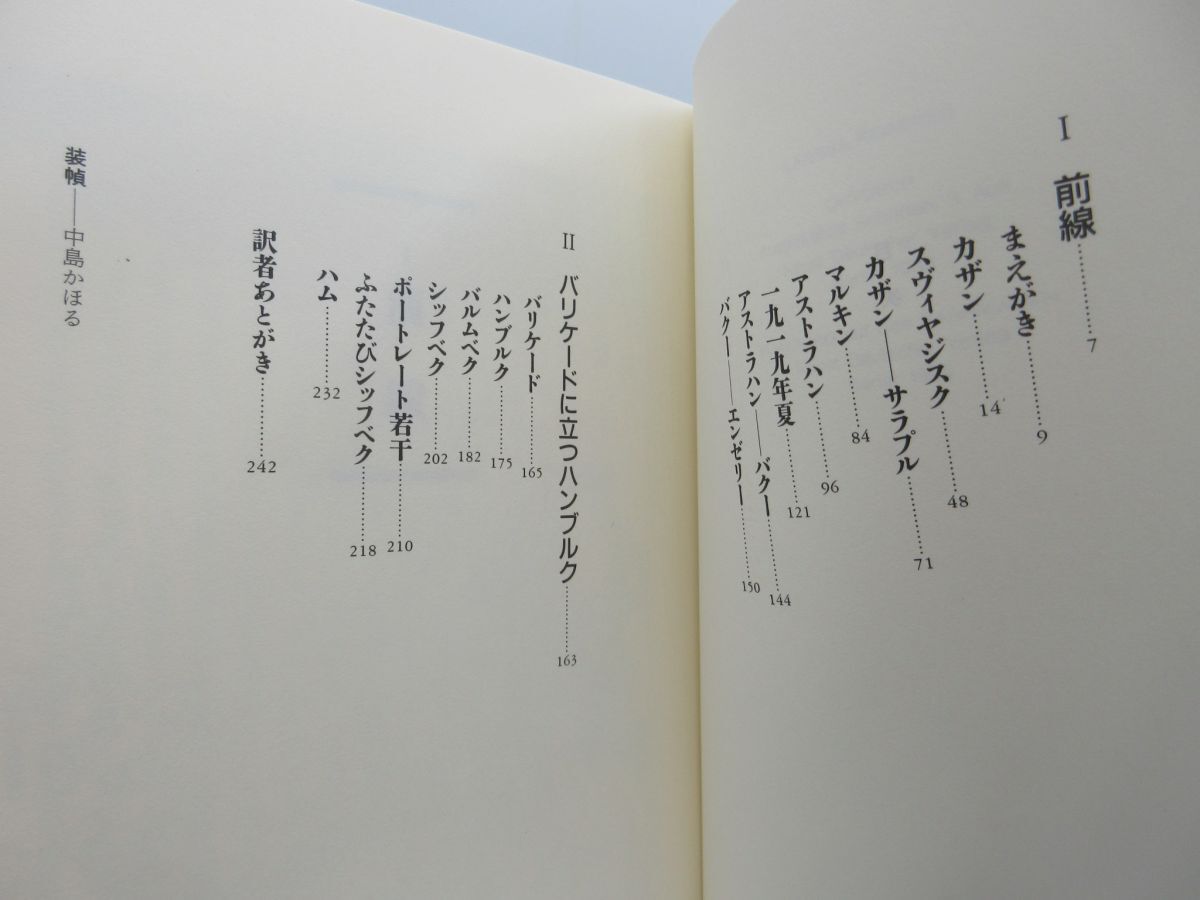 I 前線………7
まえがき………9
カザン………14
スヴィヤジスク………48
カザン——サラプル………71
マルキン………84
アストラハン………96
一九一九年夏………121
アストラハン——バクー………144
バクー——エンゼリー………150
II バリケードに立つハンブルク………163
バリケード………165
ハンブルク………175
バルムベク………182
シッフベク………202
ポートレート若干………210
ふたたびシッフベク………218
ハム………232
訳者あとがき………242
装幀——中島かほる